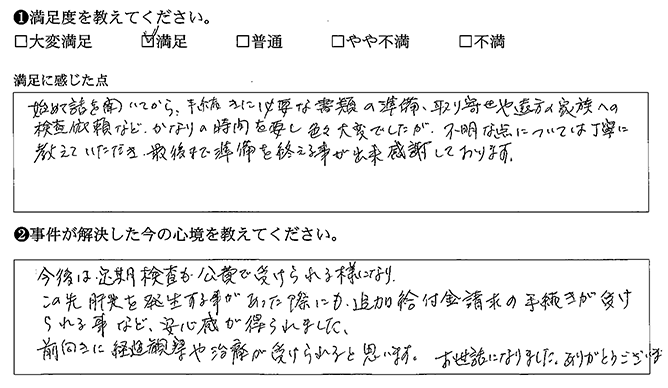 ❶満足度を教えてください。
□大変満足 ☑満足 □普通 □やや不満 □不満
満足に感じた点
始めて話を聞いてから、手続きに必要な書類の準備、取り寄せや遠方の家族への
検査依頼など、かなりの時間を要し色々大変でしたが、不明な点については丁寧に
教えていただき、最後まで準備を終える事が出来感謝しております。
❷事件が解決した今の心境を教えてください。
今後は、定期検査も公費で受けられる様になり、
この先肝炎を発生する事があった際にも、追加給付金請求の手続きが受け
られる事など、安心感が得られました、
前向きに経過観察や治療が受けられると思います。 お世話になりました、ありがとうございま